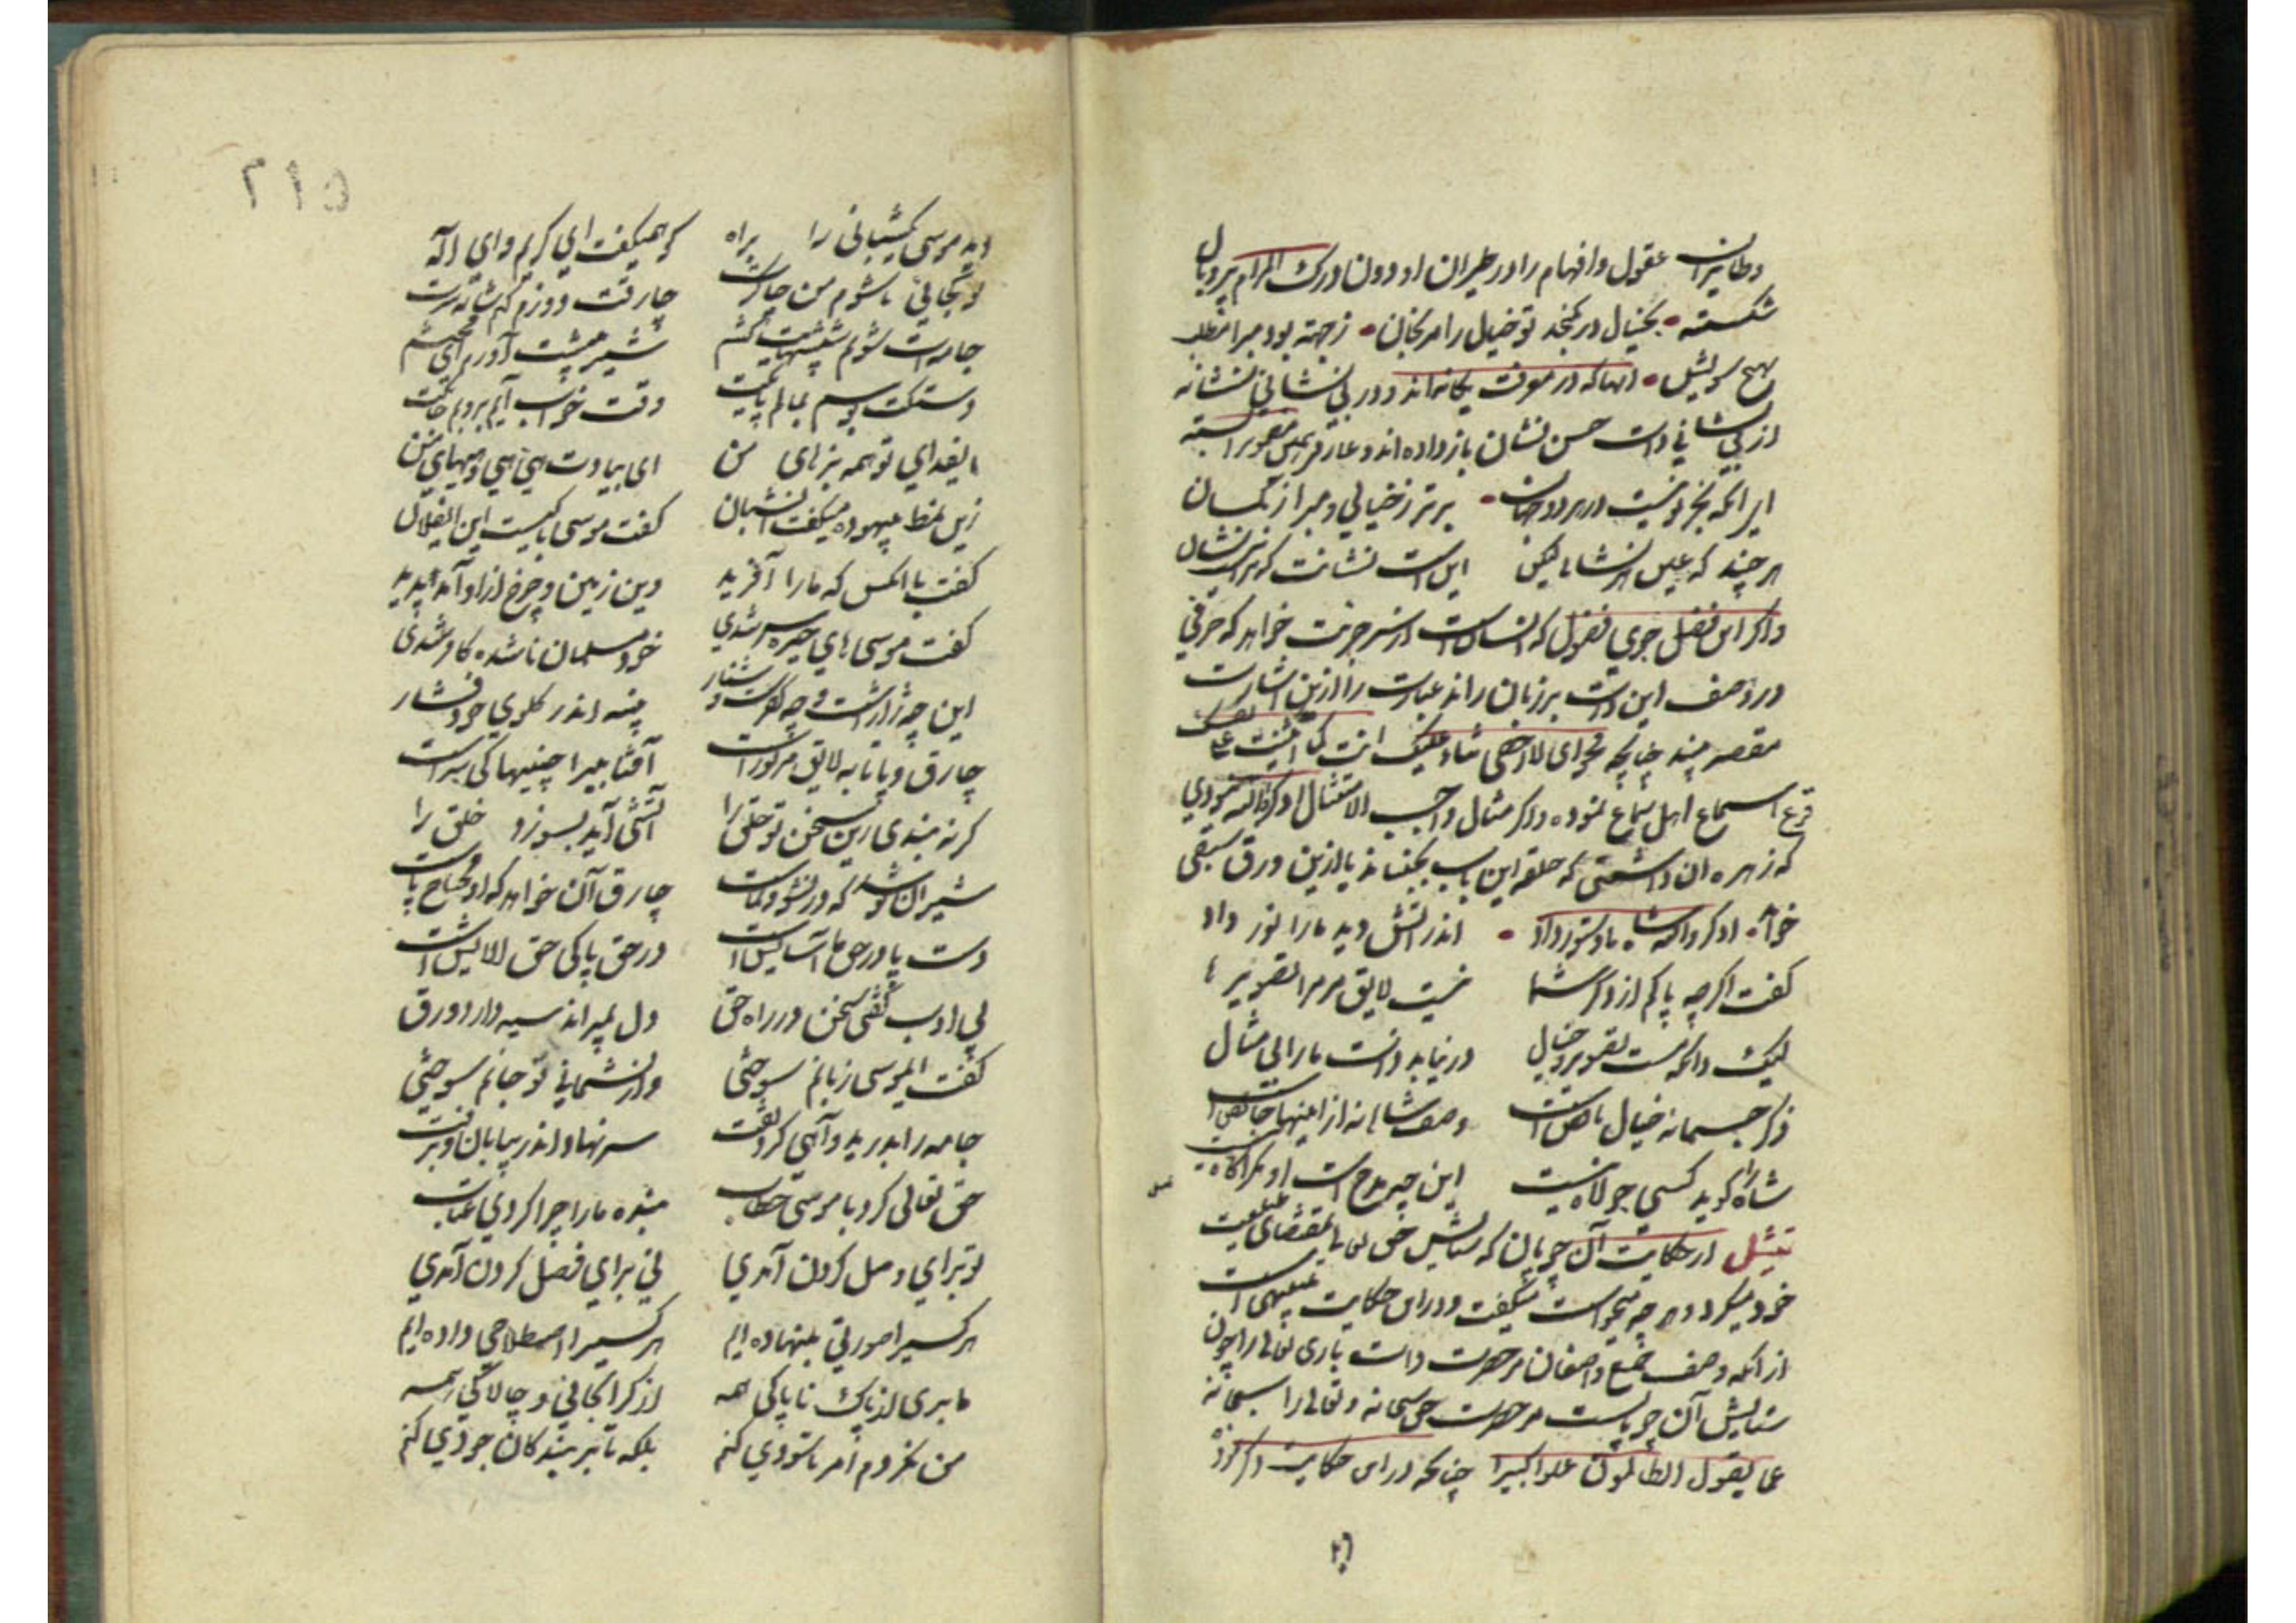 وطایران عقول و افهام را در طیران او دون درک المرام پر و بال
شکسته • بخیال در نکنجد تو خیال را مرنجان • ز جهة بود مبرا مطلب
بهیچ سویش • انها که در معرفت یکانه اند و در بی نشانی نشانه
از بی نشانی ذات حسن نشان باز داده اند و
ای انکه بجز تو نیست در هر دو جهان • برتر ز خیالی و مبرا ز کمان
هر چند که عین هر نشانی لیکن این است نشانت که نداری نشان
و اکر این فضل جوی فضول که انسانست از سر جرئت خواهد که حرفی
در وصف این ذات بر زبان راند عبارت را ازین اشارت
مقصر بیند چنانچه فحوای لا احصی ثناء علیک انت کما اثنیت علی نفسک
قرع اسماع اهل سماع نموده و اکر مثال واجب الامتثال اذکروا الله نبودی
که زهره ان داشتی که حلقه این باب بجنباند یا ازین ورق سبقی
خواند • اذکروا الله شاه ما دستور داد • اندر اتش دید ما را نور داد
کفت اکرچه پاکم از ذکر شما نیست لایق مر مرا تصویرها
لیک و انکه مست تصویر و خیال در نیابد ذات ما را بی مثال
ذکر جسمانه خیال ناقص است وصف شاهانه از اینها خالص است
شاه را کوید کسی جولاه نیست این چه مدح است او مکر اکاه نیست
تمثیل از حکایت آن چوپان که ستایش حق تعالی بمقتضای طبیعت
خود میکرد و هر چه میخواست میکفت و در این حکایت تنبیهی است
از انکه وصف جمیع واصفان مر حضرت ذات باری تعالی را چون
ستایش آن چوپانست مر حضرت حق سبحانه و تعالی را سبحانه
عما یقول الظالمون علوا کبیرا چنانچه در این حکایت ذکر کرد
۲۱۵
دید موسی یک شبانی را براه کو همیکفت ای کریم و ای اله
تو کجائی تا شوم من چاکرت چارقت دوزم کنم شانه سرت
جامه ات شویم شپشهایت کشم شیر پیشت آورم ای محتشم
دستکت بوسم بمالم پایکت وقت خواب آیم بروبم جایکت
ای فدای تو همه بزهای من ای بیادت هی هی و هیهای من
زین نمط بیهوده میکفت آن شبان کفت موسی با کیست این ای فلان
کفت با انکس که ما را آفرید وین زمین و چرخ ازاو آمد پدید
کفت موسی های خیره سر شدی خود مسلمان ناشده کافر شدی
این چه ژاژ است و چه کفرست و فشار پنبه اندر کلوی خود فشار
چارق و پاتابه لایق مر تو راست آفتابیرا چنینها کی سزاست
کر نه بندی زین سخن تو حلق را آتشی آید بسوزد خلق را
شیر ان نوشد که در نشو و نماست چارق آن خواهد که او محتاج پاست
دست و پا در حق ما آسایش است در حق پاکی حق الایش است
بی ادب کفتن سخن در راه حق دل بمیراند سیه دارد ورق
کفت ای موسی زبانم سوختی و از پشیمانی تو جانم سوختی
جامه را بدرید و آهی کرد تفت سر نهاد اندر بیابان و برفت
حق تعالی کرد با موسی خطاب بنده ما را چرا کردی عتاب
تو برای وصل کردن آمدی نی برای فصل کردن آمدی
هر کسیرا صورتی بنهاده ایم هر کسیرا اصطلاحی داده ایم
ما بری از پاک ناپاکی همه از کرانجانی و چالاکی همه
من نکردم امر تا سودی کنم بلکه تا بر بندکان جودی کنم